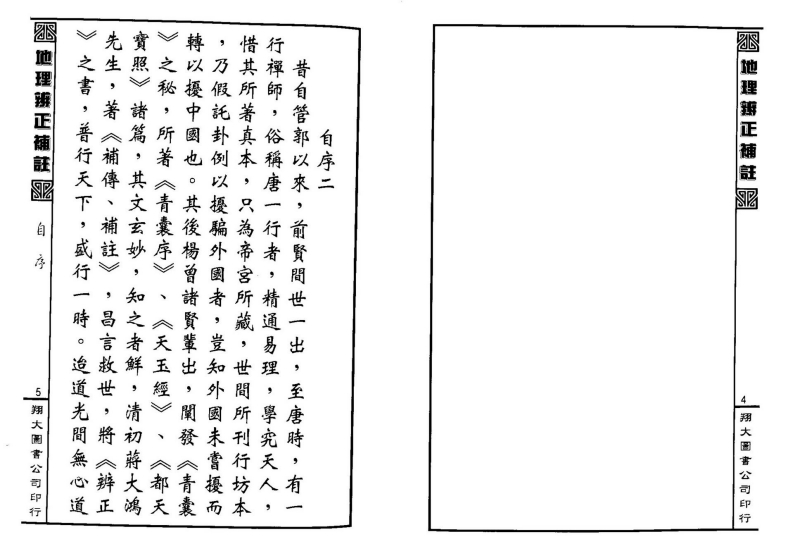 地理辨正補註
4
翔大圖書公司印行
自序二
昔自管郭以來，前賢間世一出，至唐時，有一
行禪師，俗稱唐一行者，精通易理，學究天人，
惜其所著真本，只為帝宮所藏，世間所刊行坊本
，乃假託卦例以擾騙外國者，豈知外國未嘗擾而
轉以擾中國也。其後楊曾諸賢輩出，闡發《青囊
》之秘，所著《青囊序》、《天玉經》、《都天
寶照》諸篇，其文玄妙，知之者鮮，清初蔣大鴻
先生，著《補傳、補註》，昌言救世，將《辨正
》之書，普行天下，盛行一時。迨道光間無心道
地理辨正補註
自序
5
翔大圖書公司印行